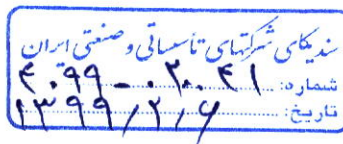 سندیکای شرکتهای تأسیساتی و صنعتی ایران
شماره: ۴۰۹۹-۰۲۰۰۴۱
تاریخ: ۱۳۹۹/۲/۶